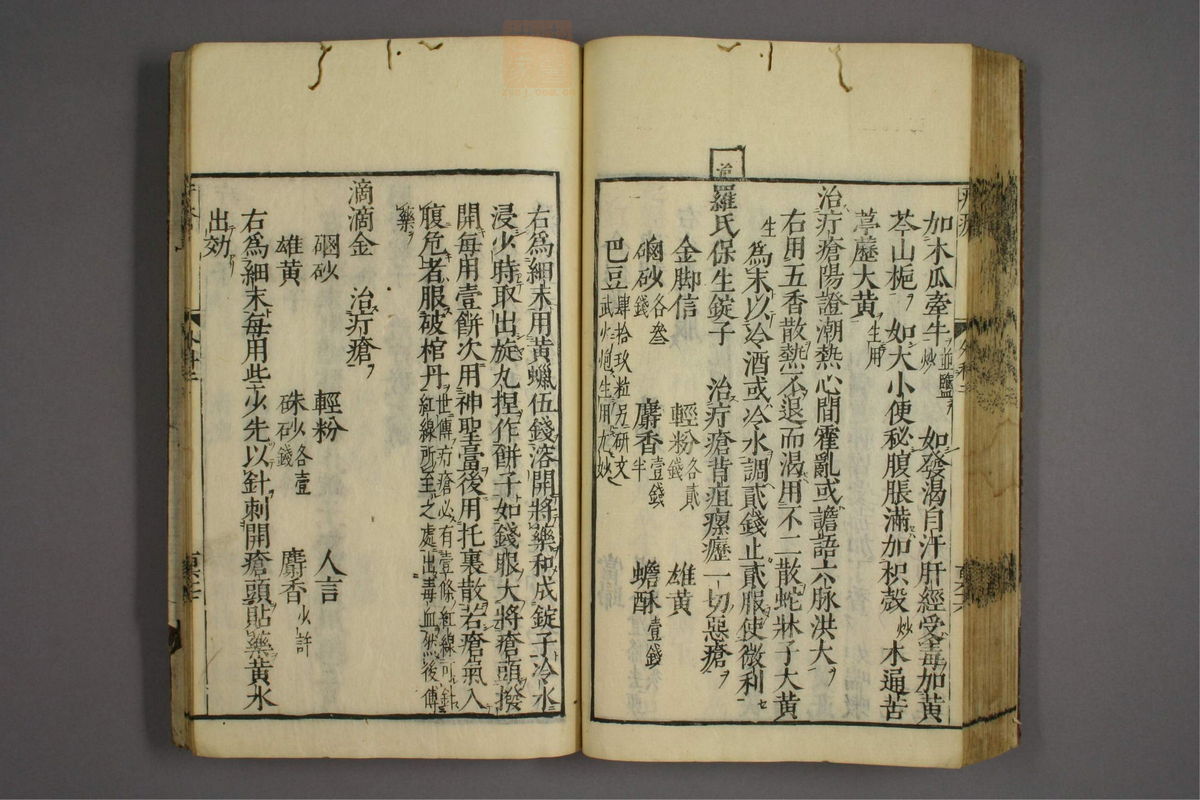 加木瓜牽牛並鹽炒 如發渴自汗肝經受毒加黃
芩山梔 如大小便秘腹脹滿加枳殼炒木通苦
葶藶大黃生用
治疔瘡陽證潮熱心間霍亂或譫語六脉洪大
右用五香散熱不退而渴用不二散蛇牀子大黃
生為末以冷酒或冷水調貳錢止貳服使微利
羅氏保生錠子 治疔瘡背疽瘰癧一切惡瘡
金脚信 輕粉各貳錢 雄黃
硇砂各叁錢 麝香壹錢半 蟾酥壹錢
巴豆肆拾玖粒另研文武火炮生用尤妙
右爲細末用黃蠟伍錢溶開將藥和成錠子冷水
浸少時取出旋丸捏作餠子如錢眼大將瘡頭撥
開每用壹餠次用神聖膏後用托裏散若瘡氣入
腹危者服破棺丹世傳疔瘡必有壹條紅線可針紅線所至之處出毒血然後傅
藥
滴滴金 治疔瘡
硇砂 輕粉 人言
雄黃 硃砂各壹錢 麝香少許
右為細末每用些少先以針刺開瘡頭貼藥黃水
出効